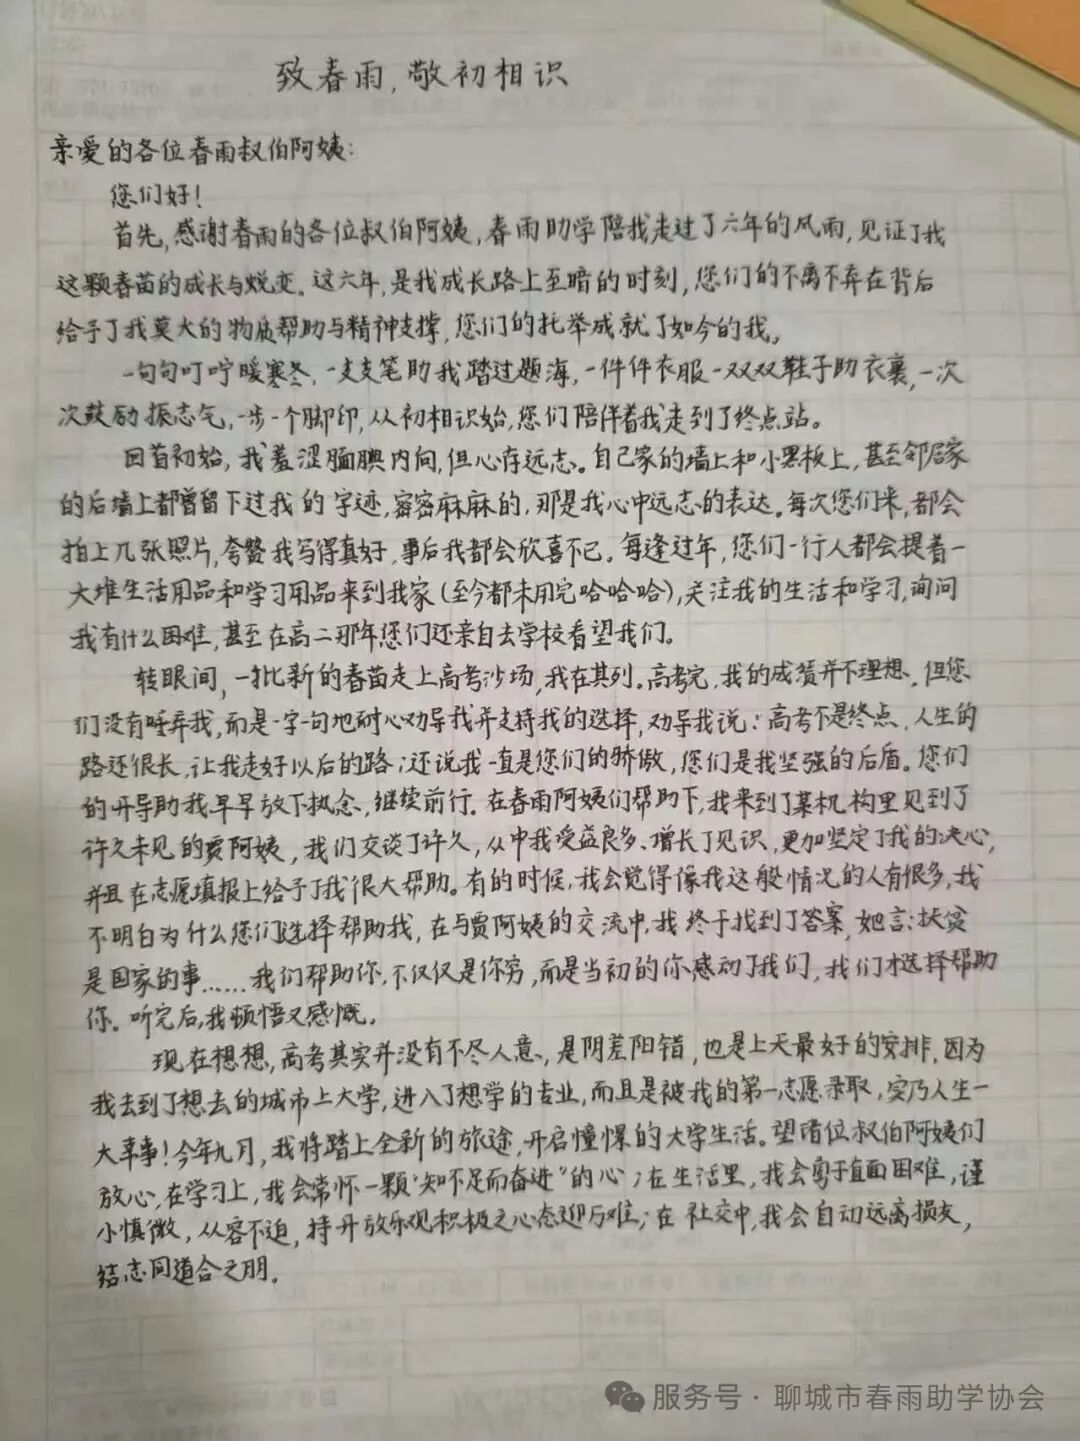 致春雨,敬初相识
亲爱的各位春雨叔伯阿姨:
您们好!
首先,感谢春雨的各位叔伯阿姨,春雨助学陪我走过了六年的风雨,见证了我
这颗春苗的成长与蜕变。这六年,是我成长路上至暗的时刻,您们的不离不弃在背后
给予了我莫大的物质帮助与精神支撑,您们的托举成就了如今的我。
一句句叮咛暖寒冬,一支支笔助我踏过题海,一件件衣服一双双鞋子助衣裹,一次
次鼓励振志气,一步一个脚印,从初相识始,您们陪伴着我走到了终点站。
回首初始,我羞涩腼腆内向,但心存远志。自己家的墙上和小黑板上,甚至邻居家
的后墙上都曾留下过我的字迹,密密麻麻的,那是我心中远志的表达。每次您们来,都会
拍上几张照片,夸赞我写得真好,事后我都会欣喜不已。每逢过年,您们一行人都会提着一
大堆生活用品和学习用品来到我家(至今都未用完哈哈哈),关注我的生活和学习,询问
我有什么困难,甚至在高二那年您们还亲自去学校看望我们。
转眼间,一批新的春苗走上高考沙场,我在其列。高考完,我的成绩并不理想,但您
们没有唾弃我,而是一字一句地耐心劝导我并支持我的选择,劝导我说:高考不是终点,人生的
路还很长,让我走好以后的路;还说我一直是您们的骄傲,您们是我坚强的后盾。您们
的开导助我早早放下执念,继续前行。在春雨阿姨们帮助下,我来到了某机构里见到了
许久未见的贾阿姨,我们交谈了许久,从中我受益良多、增长了见识,更加坚定了我的决心,
并且在志愿填报上给予了我很大帮助。有的时候,我会觉得像我这般情况的人有很多,我
不明白为什么您们选择帮助我,在与贾阿姨的交流中,我终于找到了答案,她言:扶贫
是国家的事……我们帮助你,不仅仅是你穷,而是当初的你感动了我们,我们才选择帮助
你。听完后,我顿悟又感慨。
现在想想,高考其实并没有不尽人意,是阴差阳错,也是上天最好的安排,因为
我去到了想去的城市上大学,进入了想学的专业,而且是被我的第一志愿录取,实乃人生一
大幸事!今年九月,我将踏上全新的旅途,开启憧憬的大学生活。望诸位叔伯阿姨们
放心,在学习上,我会常怀一颗“知不足而奋进”的心;在生活里,我会勇于直面困难,谨
小慎微,从容不迫,持开放乐观积极之心态迎万难;在社交中,我会自动远离损友,
结志同道合之朋。
服务号·聊城市春雨助学协会